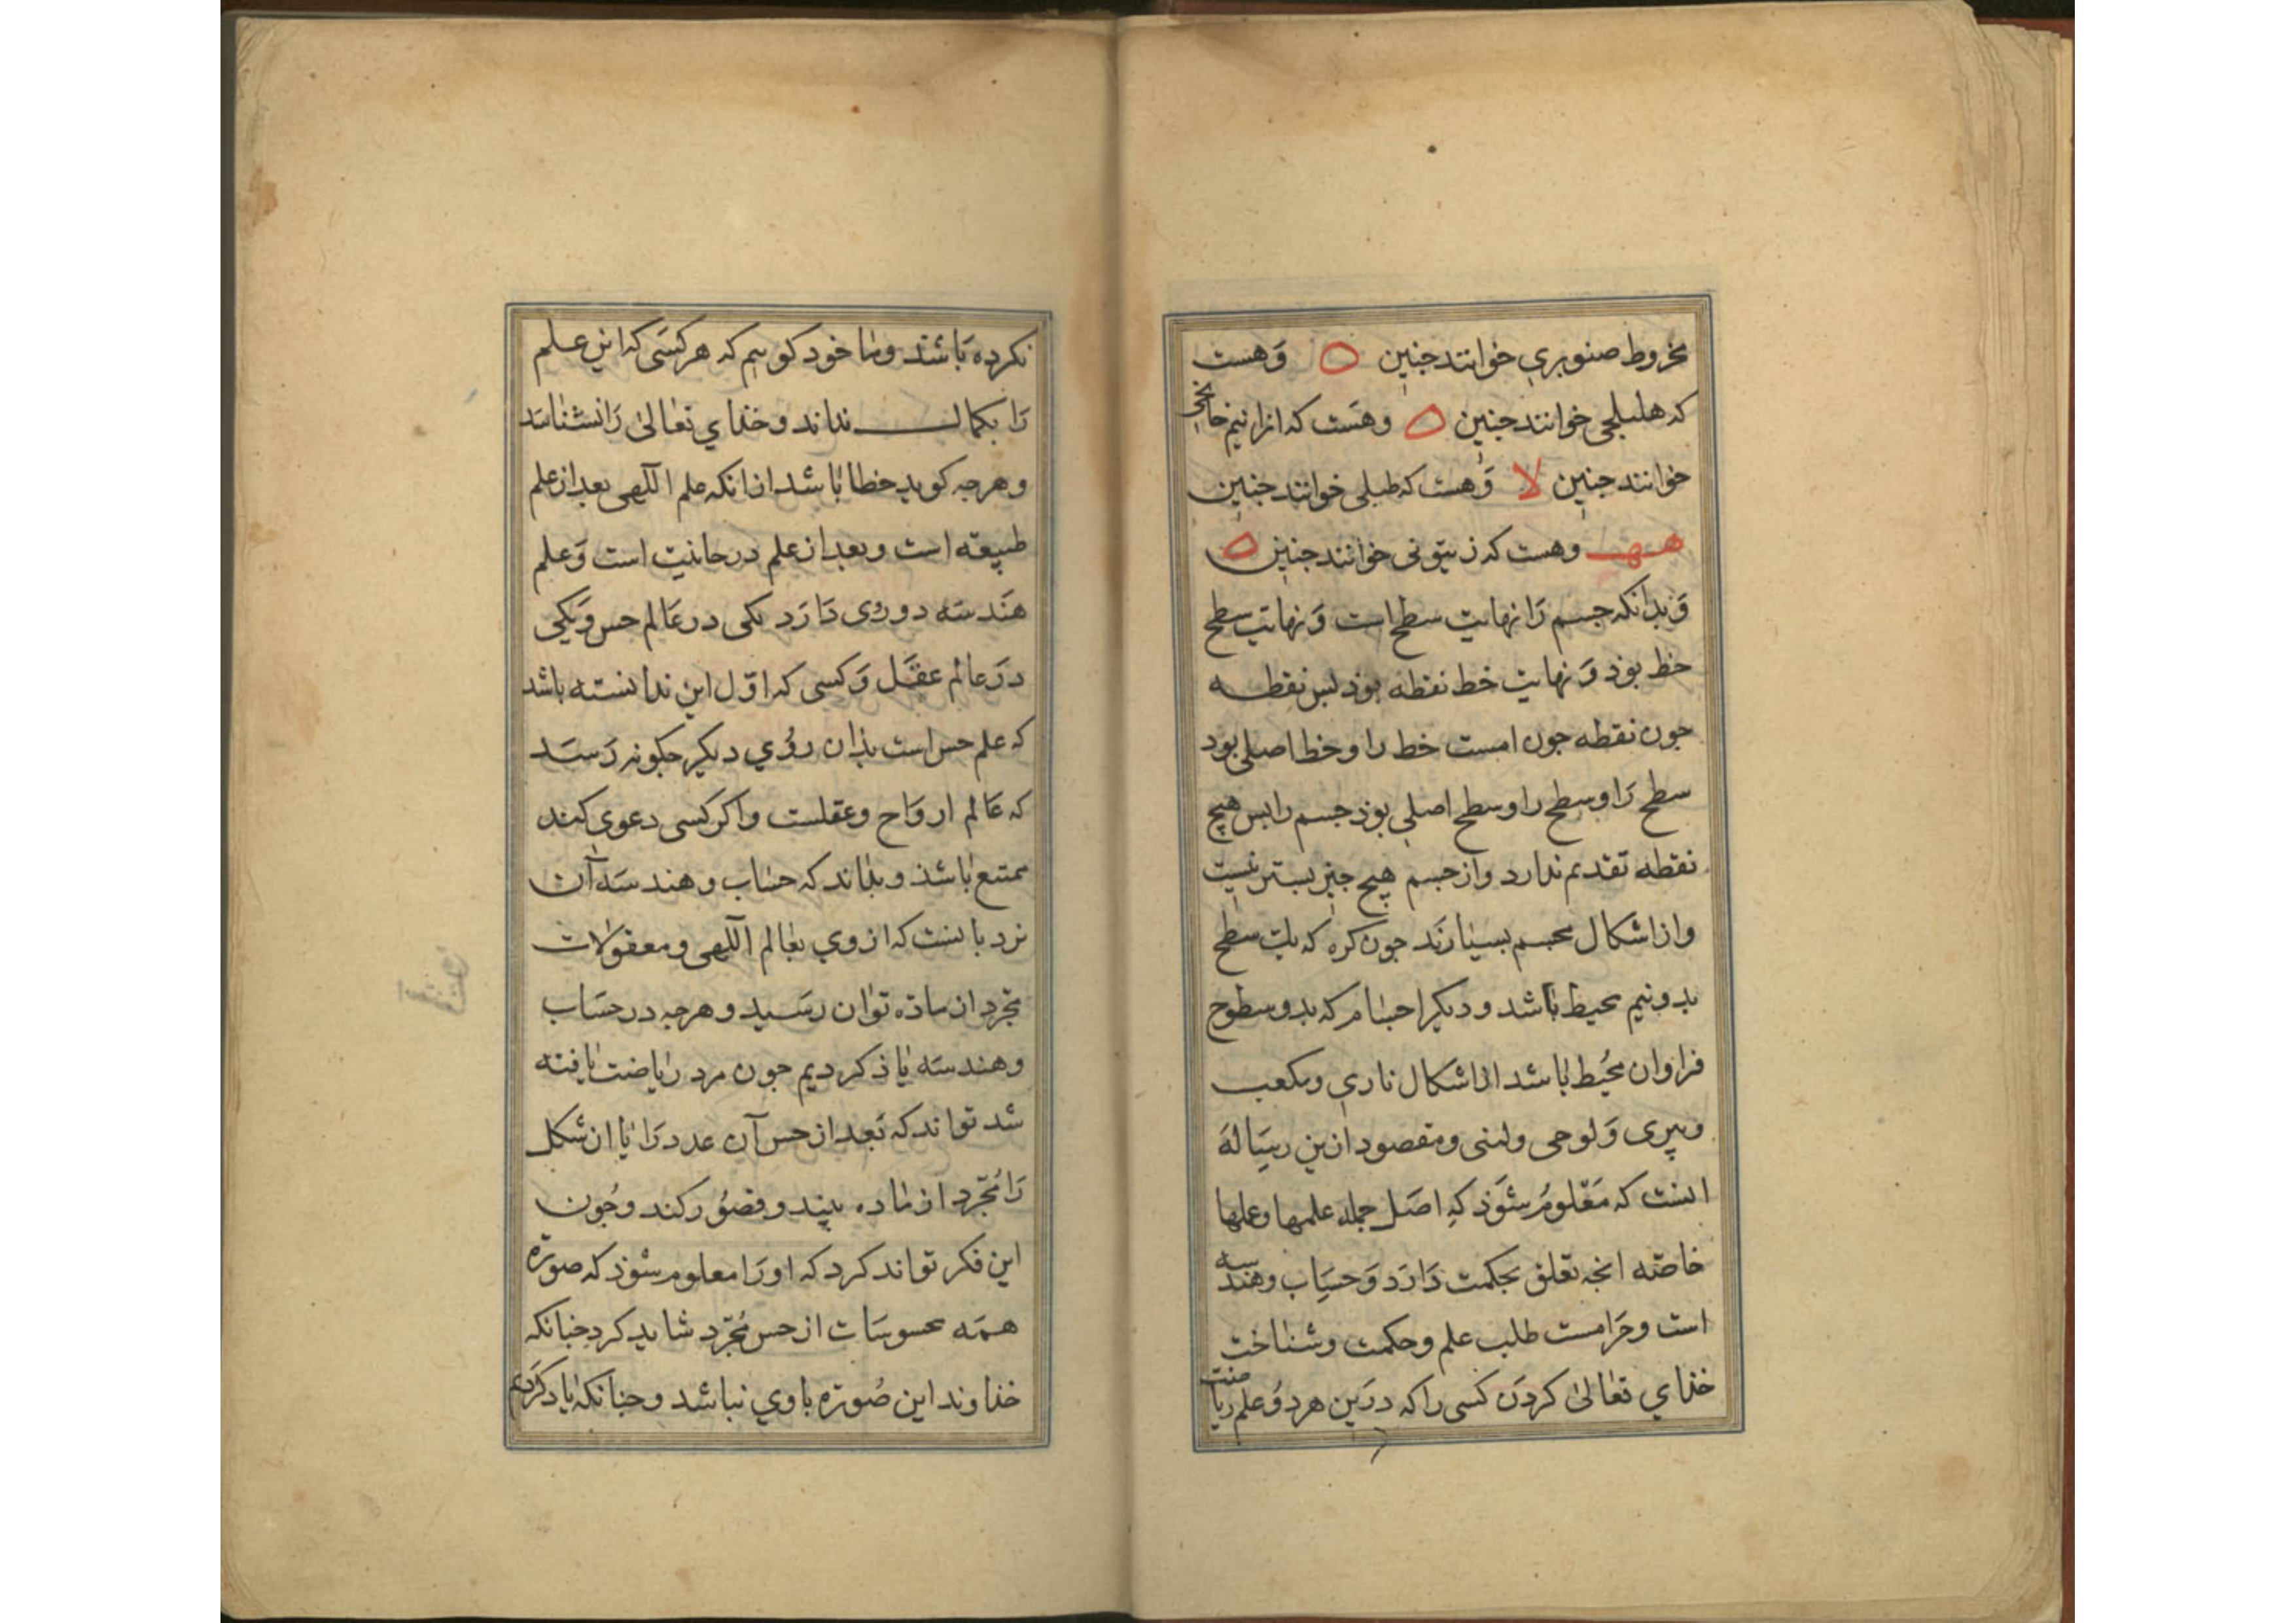 مخروط صنوبری خوانند جنین وهست
که هلیلجی خوانند جنین وهست که انرا نیم خایجی
خوانند جنین وهست که طبلی خوانند جنین
وهست که زیتونی خوانند جنین
وَبدانکه جسم رَا نهایت سطح است وَ نهایت سطح
خط بوذ وَ نهایت خط نقطه بوذ بس نقطه
جون نقطه جون امست خط را و خط اصلی بود
سطح رَا وسطح را وسطح اصلی بوذ جسم را بس هیچ
نقطه تقدیم ندارد واز جسم هیچ جیز بستر نیست
واز اشکال مجسم بسیارَند جون کره که یک سطح
بدو نیم محیط باشد و دیکر اجسام که بدو سطوح
فراوان مُحیط باشد از اشکال ناری ومکعب
وبیری وَ لوحی ولبنی ومقصود ازین رسَالهَ
اینست که مَعْلومُ شوَذ که اصَل جمله علمها وعلها
خاصّه انجه تعلق بحکمت دَارَد وَ حسَاب وهندسه
است وحَرامست طلب علم وحکمت وشناخت
خذای تعالیٰ کردَن کسی را که درَین هردوُ علم ریاضت
نکرده بَاشند وما خود کوییم که هر کسَی که این علم
رَا بکمال نداند و خذای تعالیٰ رَا نشناسَد
وهرجه کوید خطا باشد از انکه علم الٓهی بعد از علم
طبیعته است وبعد از علم درحانیت است وَعلم
هندسَه دو روی دَارَد یکی در عَالم حس وَ یکی
درَعالم عقَل وَ کسی که اوّل این ندانسته باشد
که علم حس است بذان روُی دیکر جکونه رَسَد
که عَالم اروَاح وعقلست واکر کسی دعوی کند
ممتنع باشذ وبداند که حسَاب وهندسَه آن
نردبانست که از وی بعالم الٓهی ومعقولات
مجرّد از ماده توان رسَید وهرجه در حسَاب
وهندسَه یاذ کردیم جون مرد ریاضت یافته
شد تواند که بَعد از حس آن عدد رَا یا ان شکل
رَا مُجرّد از ماده بیند وتصوُر کند وجُون
این فکر تواند کرد که اورَا معلوم شوذ که صورَة
همَه محسوسَات از حس مُجرّد شاید کرد جنانکه
خذاوند این صُورَة باوی نباشد وجنانکه یاد کَردَیم